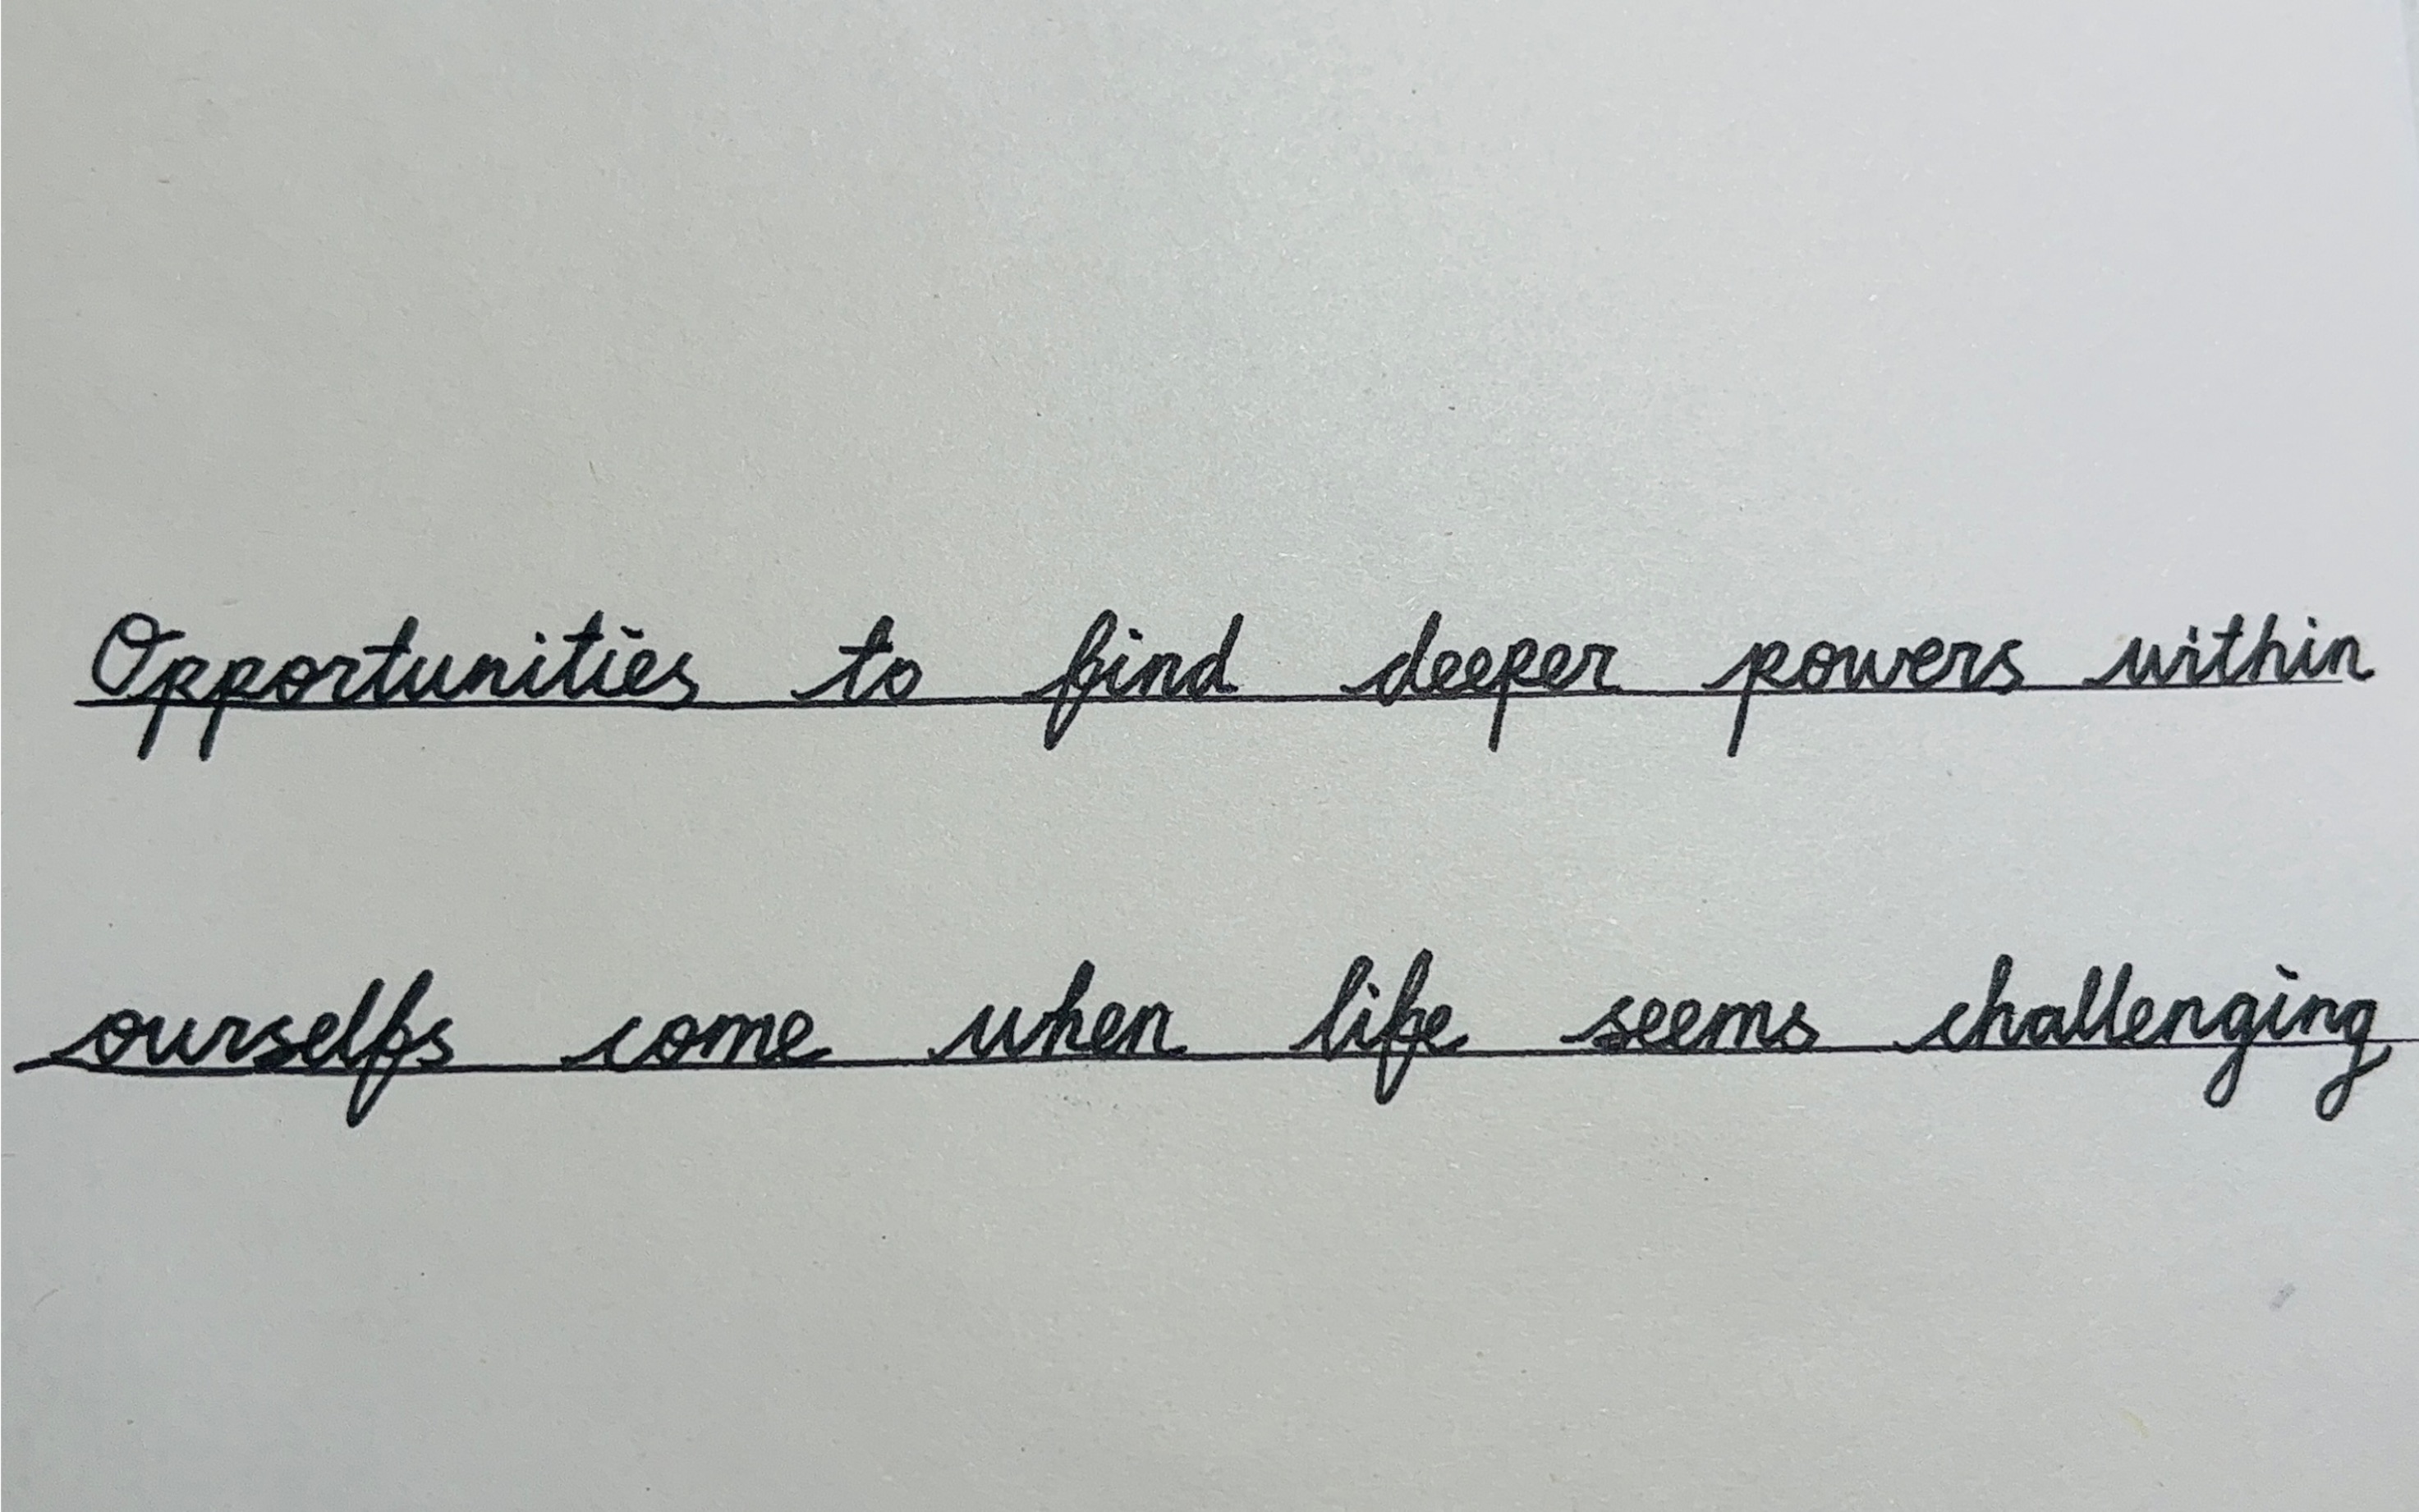 Opportunities to find deeper powers within
ourselfs come when life seems challenging